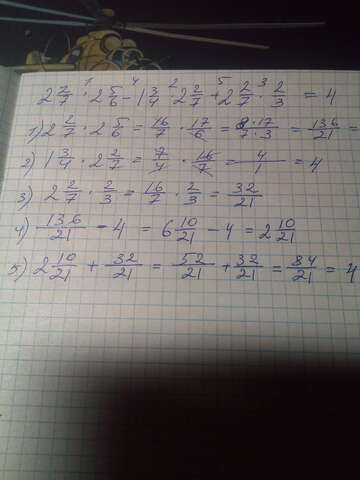 2 2/7 · 2 5/6 - 1 3/4 · 2 2/7 + 2 2/7 · 2/3 = 4
1) 2 2/7 · 2 5/6 = 16/7 · 17/6 = 8·17/7·3 = 136/21 =
2) 1 3/4 · 2 2/7 = 7/4 · 16/7 = 4/1 = 4
3) 2 2/7 · 2/3 = 16/7 · 2/3 = 32/21
4) 136/21 - 4 = 6 10/21 - 4 = 2 10/21
5) 2 10/21 + 32/21 = 52/21 + 32/21 = 84/21 = 4